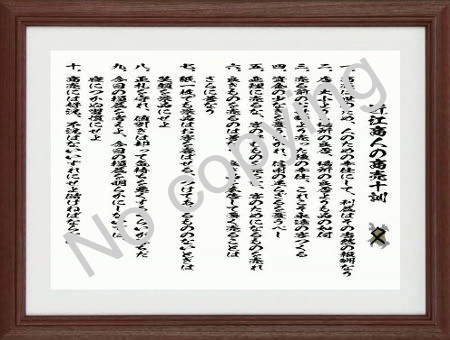 近江商人の商売十訓
一、商売は世のため、人のための奉仕にして、利益はその当然の報酬なり
二、店の大小よりも場所の良否、場所の良否よりも品の如何
三、売る前のお世辞より売った後の奉仕、これこそ永遠の客をつくる
四、資金の少なきを憂うなかれ、信用の足らざるを憂うべし
五、無理に売るな、客の好むものも売るな、客のためになるものを売れ
六、良きものを売るのは善なり、良き品を広告して多く売ることは
さらに善なり
七、紙一枚でも景品はお客を喜ばせる、つけてあげるもののないときは
笑顔を景品にせよ
八、正札を守れ、値引きは却って気持ちを悪くするくらいが落ちだ
九、今日の損益を考えよ、今日の損益を明らかにしないでは
寝につかぬ習慣にせよ
十、商売には好況、不況はないいずれにせよ儲けねばならぬ
No copying